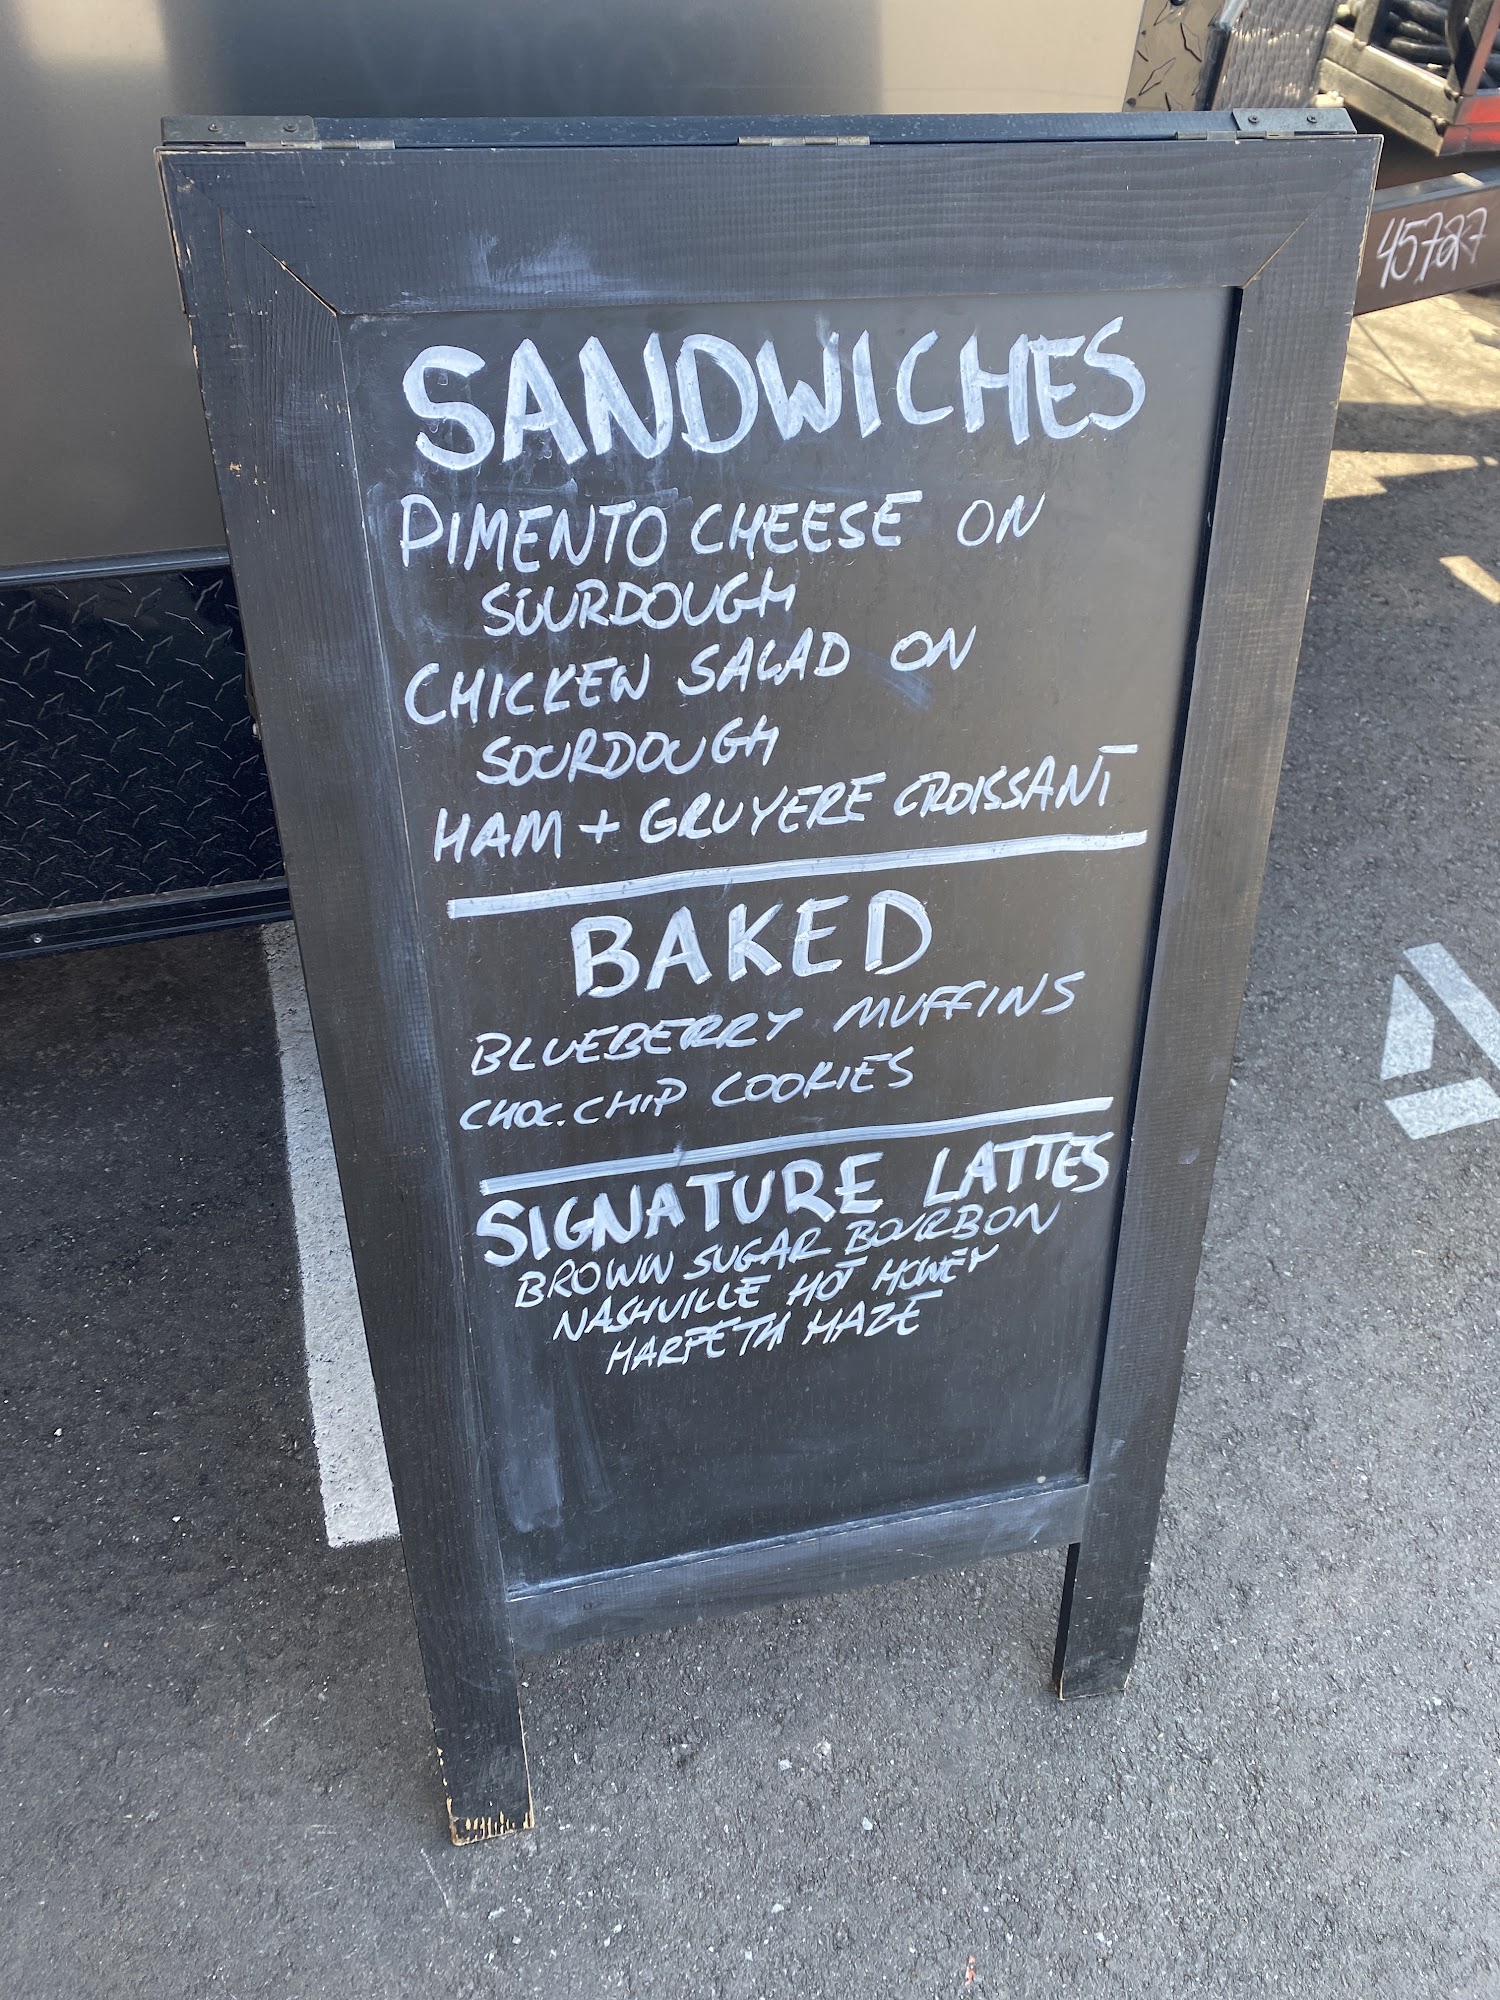 45727
SANDWICHES
PIMENTO CHEESE ON
SOURDOUGH
CHICKEN SALAD ON
SOURDOUGH
HAM + GRUYERE CROISSANT
BAKED
BLUEBERRY MUFFINS
CHOC. CHIP COOKIES
SIGNATURE LATTES
BROWN SUGAR BOURBON
NASHVILLE HOT HONEY
HARPETH HAZE